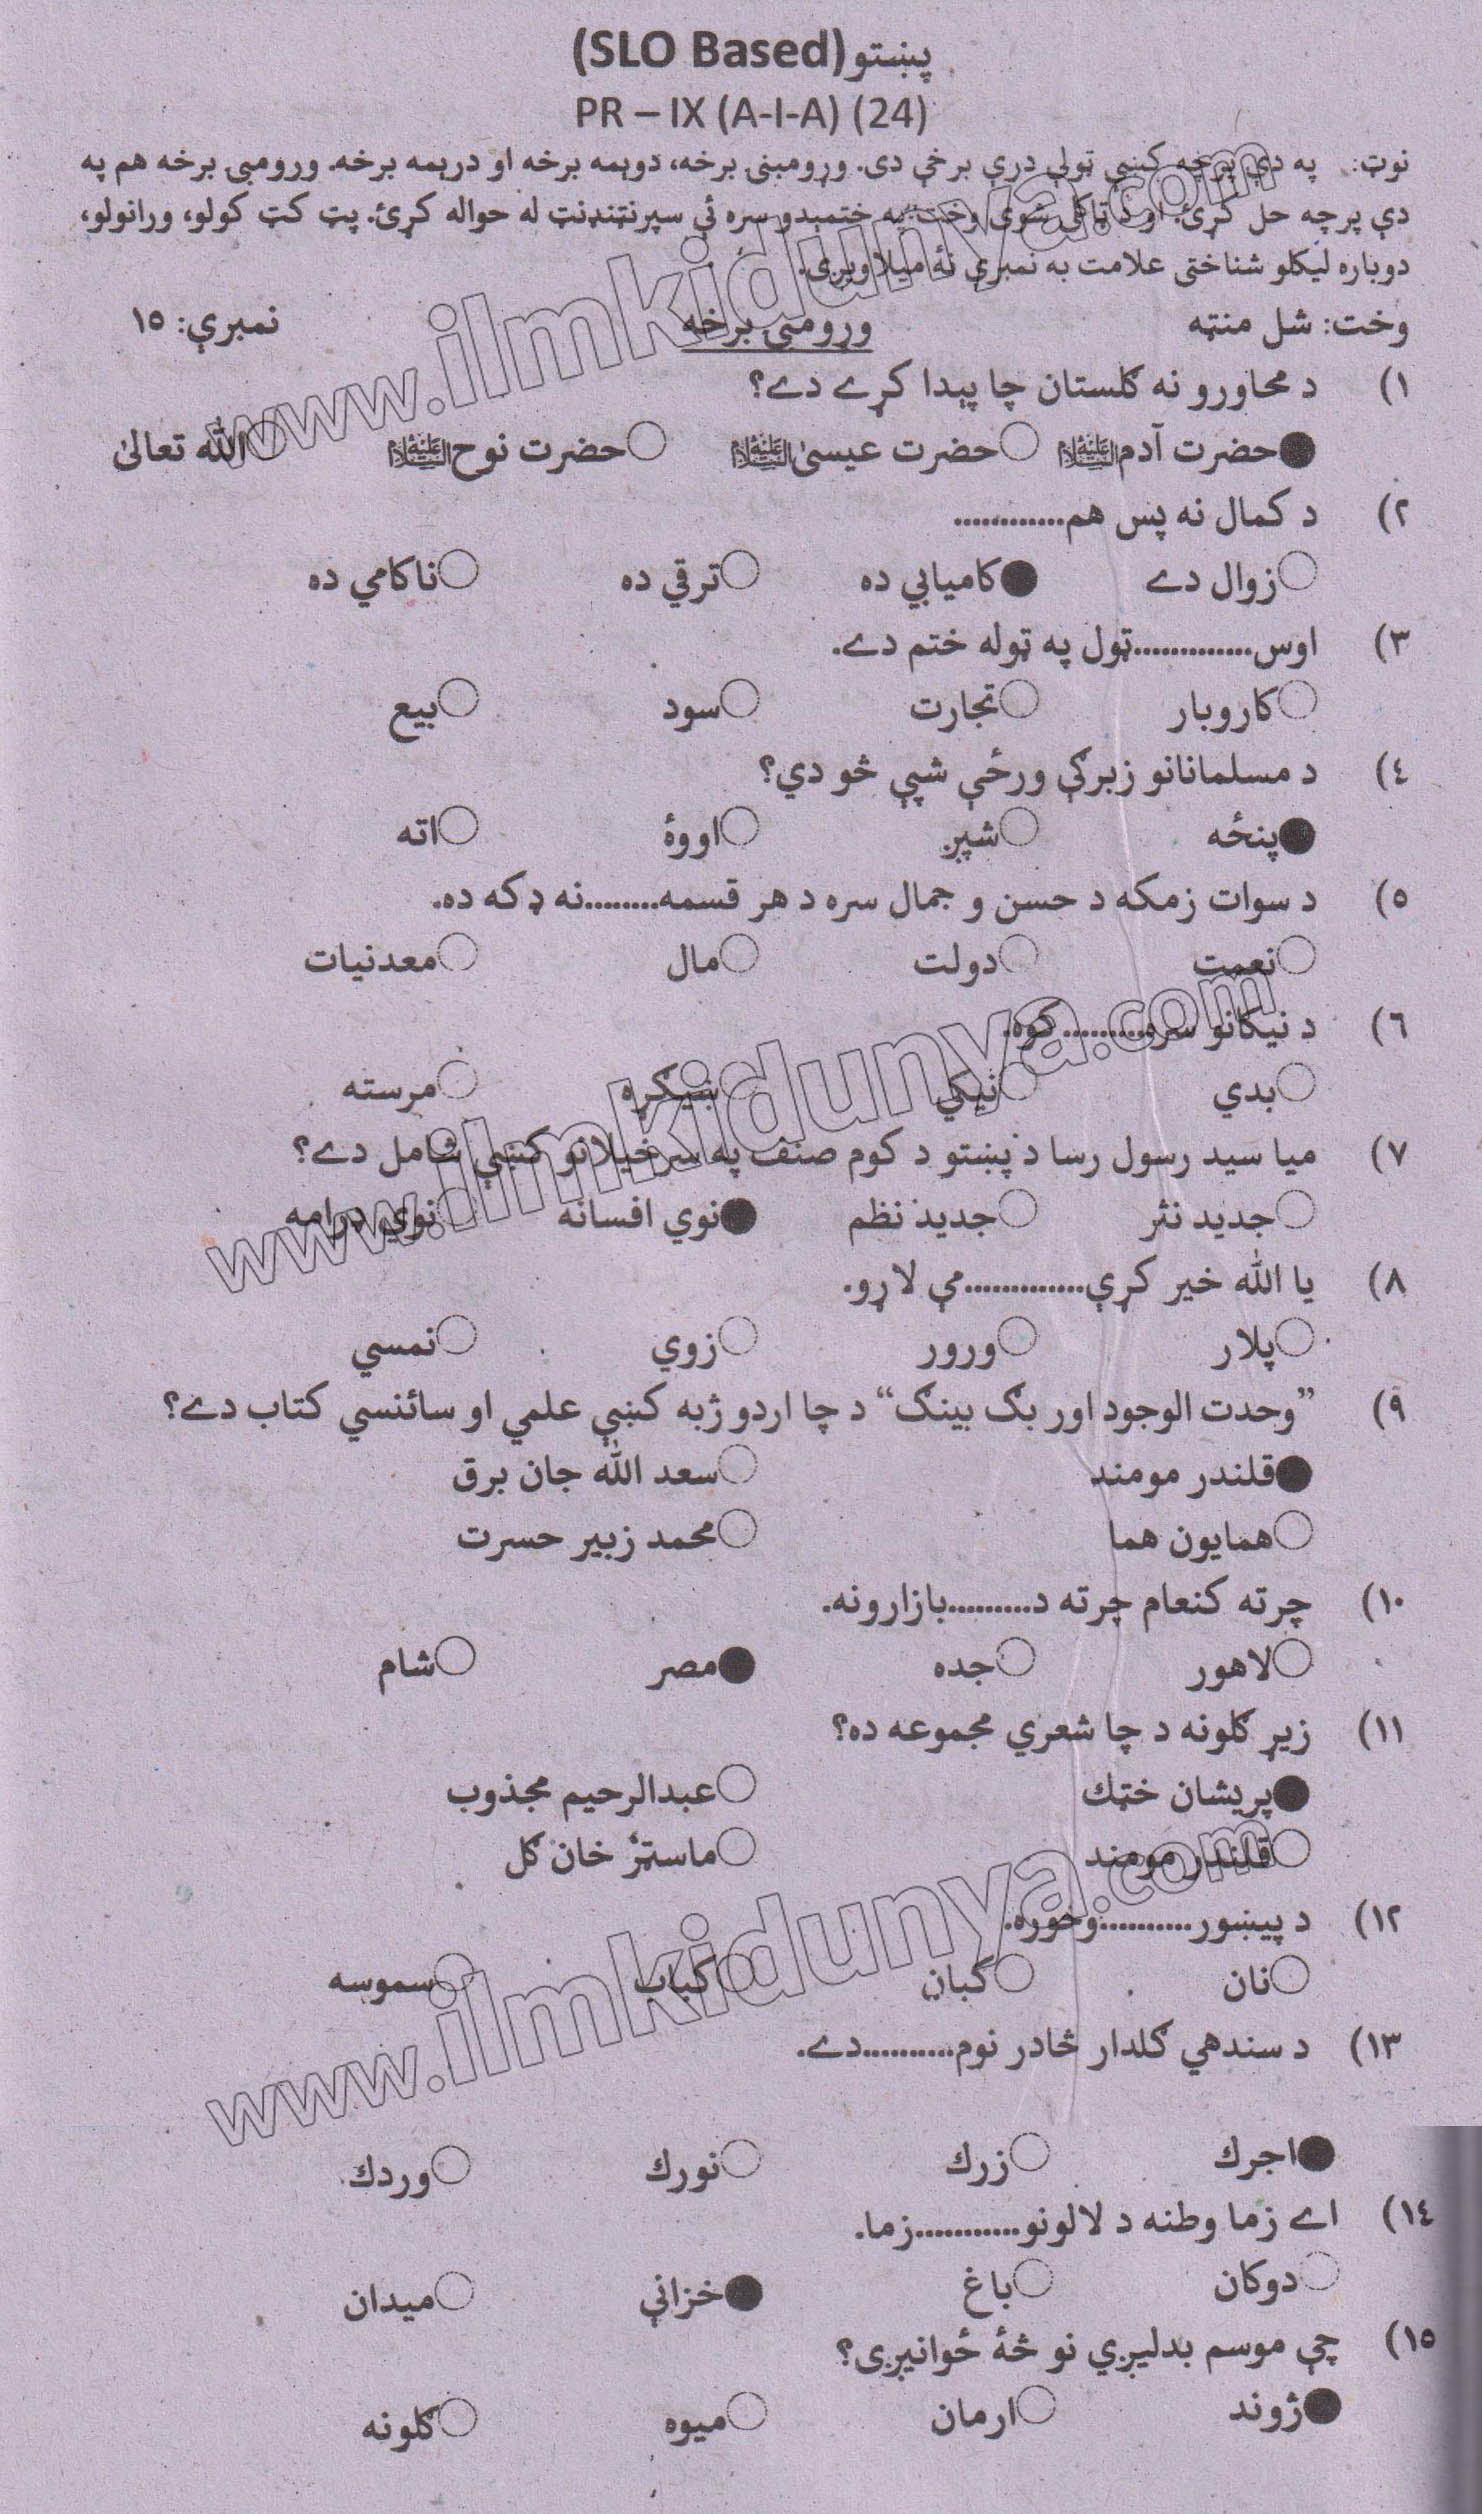 پښتو (SLO Based)
PR – IX (A-I-A) (24)
نوټ: په دې پرچه کښې ټولې درې برخې دی. وړومبنۍ برخه، دوېمه برخه او درېمه برخه. وړومبۍ برخه هم په
دې پرچه حل کړئ. او د ټاکلی شوی وخت په ختمېدو سره ئې سپرنټنډنټ له حواله کړئ. پټ کټ کولو، ورانولو،
دوباره لیکلو شناختی علامت به نمبرې نۀ میلاویږی.
وخت: شل منټه وړومبۍ برخه نمبرې: ١٥
١) د محاورو نه ګلستان چا پېدا کړے دے؟
حضرت آدم علیہ السلام حضرت عیسیٰ علیہ السلام حضرت نوح علیہ السلام الله تعالیٰ
٢) د کمال نه پس هم............
زوال دے کامیابي ده ترقي ده ناکامي ده
٣) اوس.............ټول په ټوله ختم دے.
کاروبار تجارت سود بیع
٤) د مسلمانانو زبرګې ورځې شپې څو دي؟
پنځه شپږ اووۀ اته
٥) د سوات زمکه د حسن و جمال سره د هر قسمه........نه ډکه ده.
نعمت دولت مال معدنیات
٦) د نیکانو سره..........کوه.
بدي نیکي ښیګړه مرسته
٧) میا سید رسول رسا د پښتو د کوم صنف په سرخیلانو کښې شامل دے؟
جدید نثر جدید نظم نوي افسانه نوي ډرامه
٨) یا الله خیر کړې.............مې لاړو.
پلار ورور زوي نمسي
٩) ”وحدت الوجود اور بګ بینګ“ د چا اردو ژبه کښې علمي او سائنسي کتاب دے؟
قلندر مومند سعد الله جان برق
همایون هما محمد زبیر حسرت
١٠) چرته کنعام چرته د.........بازارونه.
لاهور جده مصر شام
١١) زیړ ګلونه د چا شعري مجموعه ده؟
پریشان خټک عبدالرحیم مجذوب
قلندر مومند ماسټر خان ګل
١٢) د پیښور..........وخوره.
نان کبان کباب سموسه
١٣) د سندهي ګلدار څادر نوم..........دے.
اجرك زرك نورك وردك
١٤) اے زما وطنه د لالونو...........زما.
دوکان باغ خزانې میدان
١٥) چې موسم بدلیږي نو څۀ ځوانیږی؟
ژوند ارمان میوه ګلونه
www.ilmkidunya.com
www.ilmkidunya.com
www.ilmkidunya.com